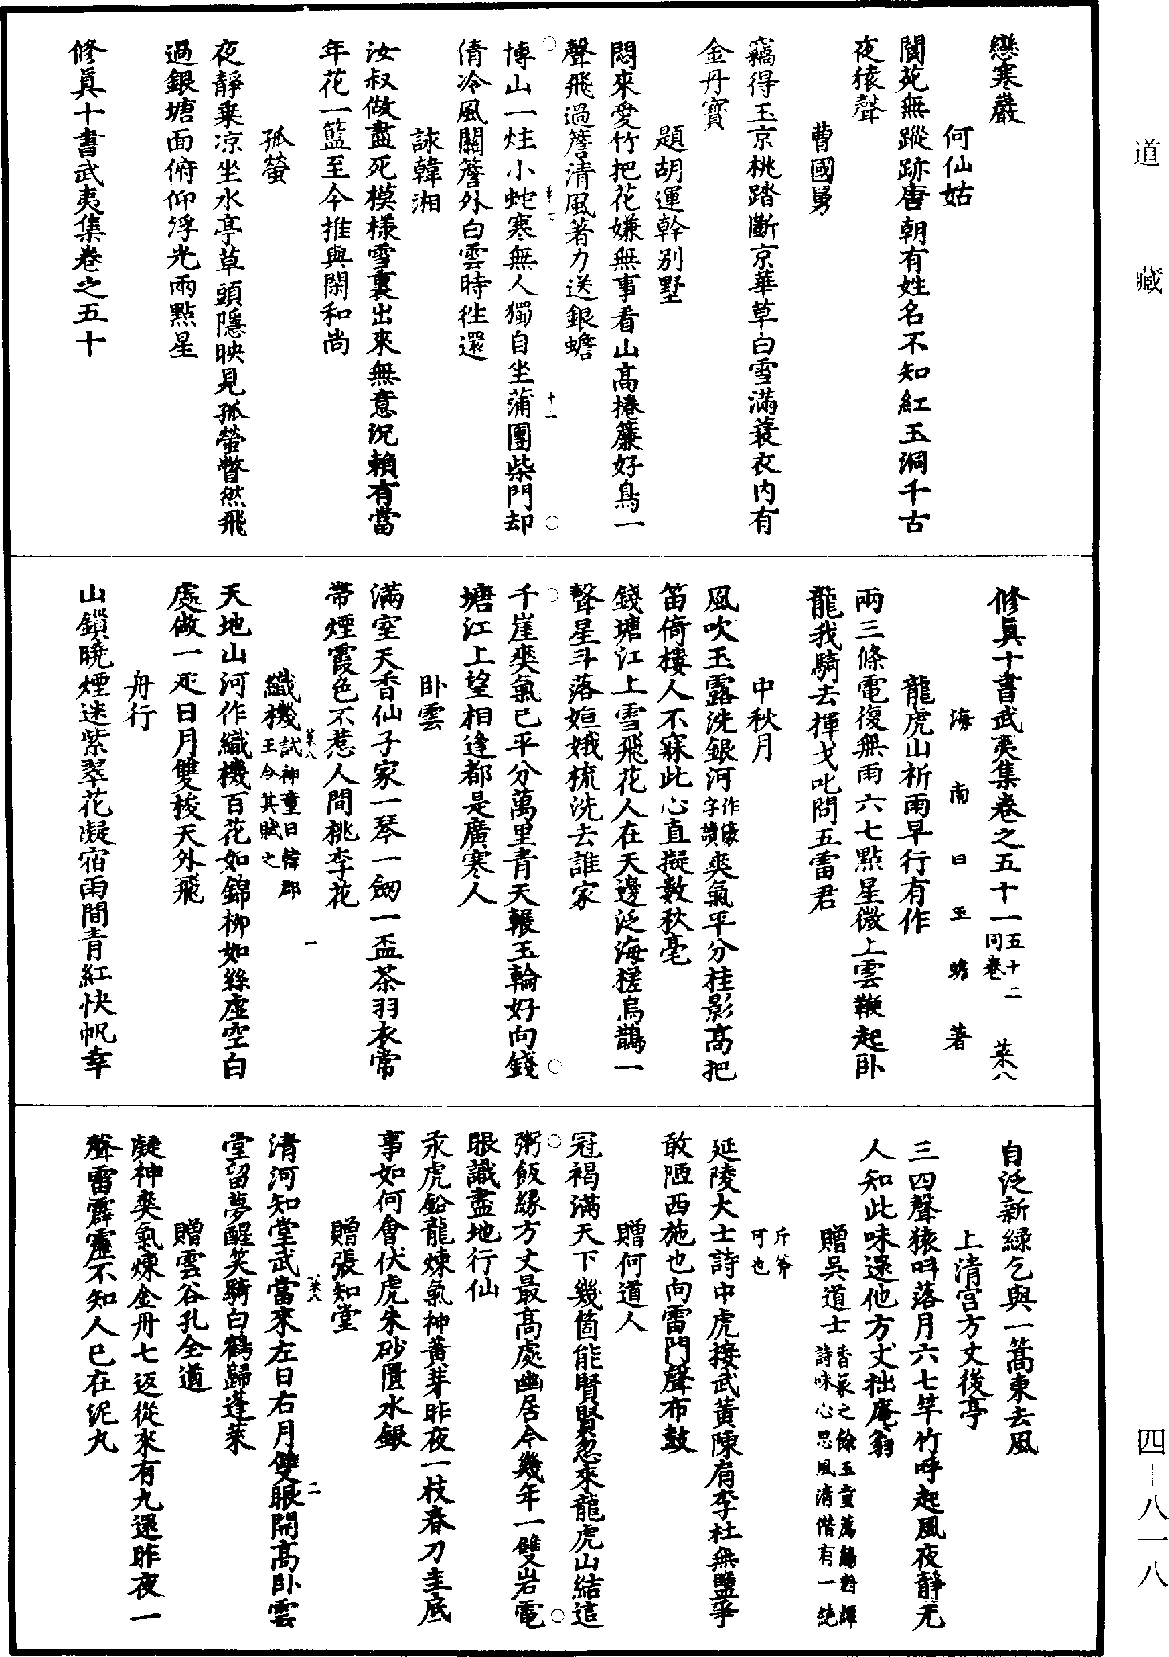 道藏
戀寒巖
何仙姑
閬苑無蹤跡唐朝有姓名不知紅玉洞千古
夜猿聲
曹國舅
竊得玉京桃踏斷京華草白雪滿蓑衣內有
金丹寶
題胡運幹別墅
悶來愛竹把花嫌無事看山高捲簾好鳥一
聲飛過簷清風著力送銀蟾
博山一炷小蛇寒無人獨自坐蒲團柴門却
倩冷風關簷外白雲時徃還
詠韓湘
汝叔做盡死模樣雪裏出來無意況賴有當
年花一籃至今推與閑和尚
孤螢
夜靜乗凉坐水亭草頭隱映見孤螢瞥然飛
過銀塘面俯仰浮光兩點星
修眞十書武夷集卷之五十
修眞十書武夷集卷之五十一五十二同卷 菜八
海南白玉蟾著
龍虎山祈雨早行有作
兩三條電復無雨六七點星微上雲鞭起卧
龍我騎去揮戈叱問五雷君
中秋月
風吹玉露洗銀河爽氣平分桂影高把
笛倚樓人不寐此心直擬數秋毫
錢塘江上雪飛花人在天邊泛海槎烏鵲一
聲星斗落姮娥梳洗去誰家
千崖爽氣已平分萬里青天輾玉輪好向錢
塘江上望相逢都是廣寒人
卧雲
滿室天香仙子家一琴一劒一盃茶羽衣常
帶煙霞色不惹人間桃李花
織機試神童日韓郡王令其賦之
天地山河作織機百花如錦柳如絲虛空白
處做一疋日月雙梭天外飛
舟行
山鎖曉煙迷紫翠花凝宿雨間青紅快帆幸
自泛新緑乞與一篙東去風
上清宮方丈後亭
三四聲猿呌落月六七竿竹呼起風夜靜无
人知此味還他方丈拙庵翁
贈吳道士
延陵大士詩中虎接武黃陳肩李杜無鹽爭
敢陋西施也向雷門聲布鼓
贈何道人
冠褐滿天下幾箇能賢賢忽來龍虎山結這
粥飯緣方丈最高處幽居今幾年一雙岩電
眼識盡地行仙
汞虎鉛龍煉氣神黃芽昨夜一枝春刀圭底
事如何會伏虎朱砂匱水銀
贈張知堂
清河知堂武當來左日右月雙眼開高卧雲
堂留夢醒笑騎白鶴歸蓬萊
贈雲谷孔全道
凝神爽氣煉金丹七返從來有九還昨夜一
聲雷霹靂不知人已在泥丸
四—八一八